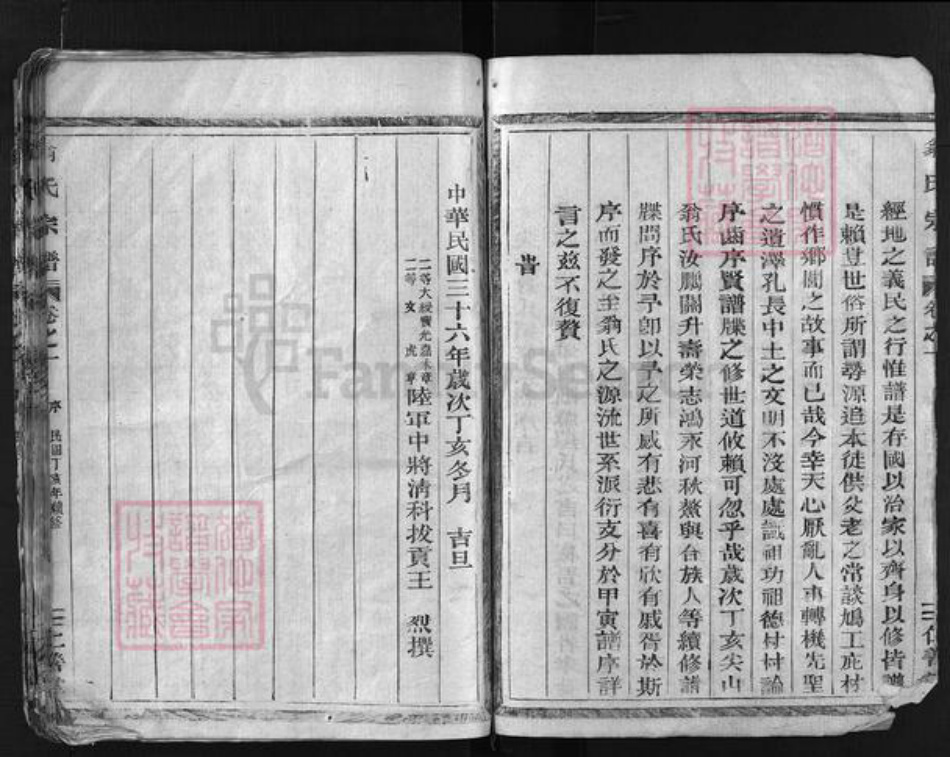 氏宗譜 卷之一
經地之義民之行惟譜是存國以治家以齊身以修皆譜
是賴豈世俗所謂尋源追本徒供父老之常談鳩工庀材
慣作鄉閭之故事而已哉今幸天心厭亂人事轉機先聖
之遺澤孔長中土之文明不沒處處識祖功祖德村村論
序齒序賢譜牒之修世道攸賴可忽乎哉歲次丁亥尖山
翁氏汝鵬關升壽榮志鴻汞河秋鰲與合族人等續修譜
牒問序於予卽以予之所感有悲有喜有欣有戚胥於斯
序而發之至翁氏之源流世系派衍支分於甲寅譜序詳
言之茲不復贅
旹
中華民國三十六年歲次丁亥冬月 吉旦
二等大綬寶光嘉禾章
二等文虎章
陸軍中將清科拔貢王 烈撰
氏宗譜 卷之一 序 民國丁亥年續修